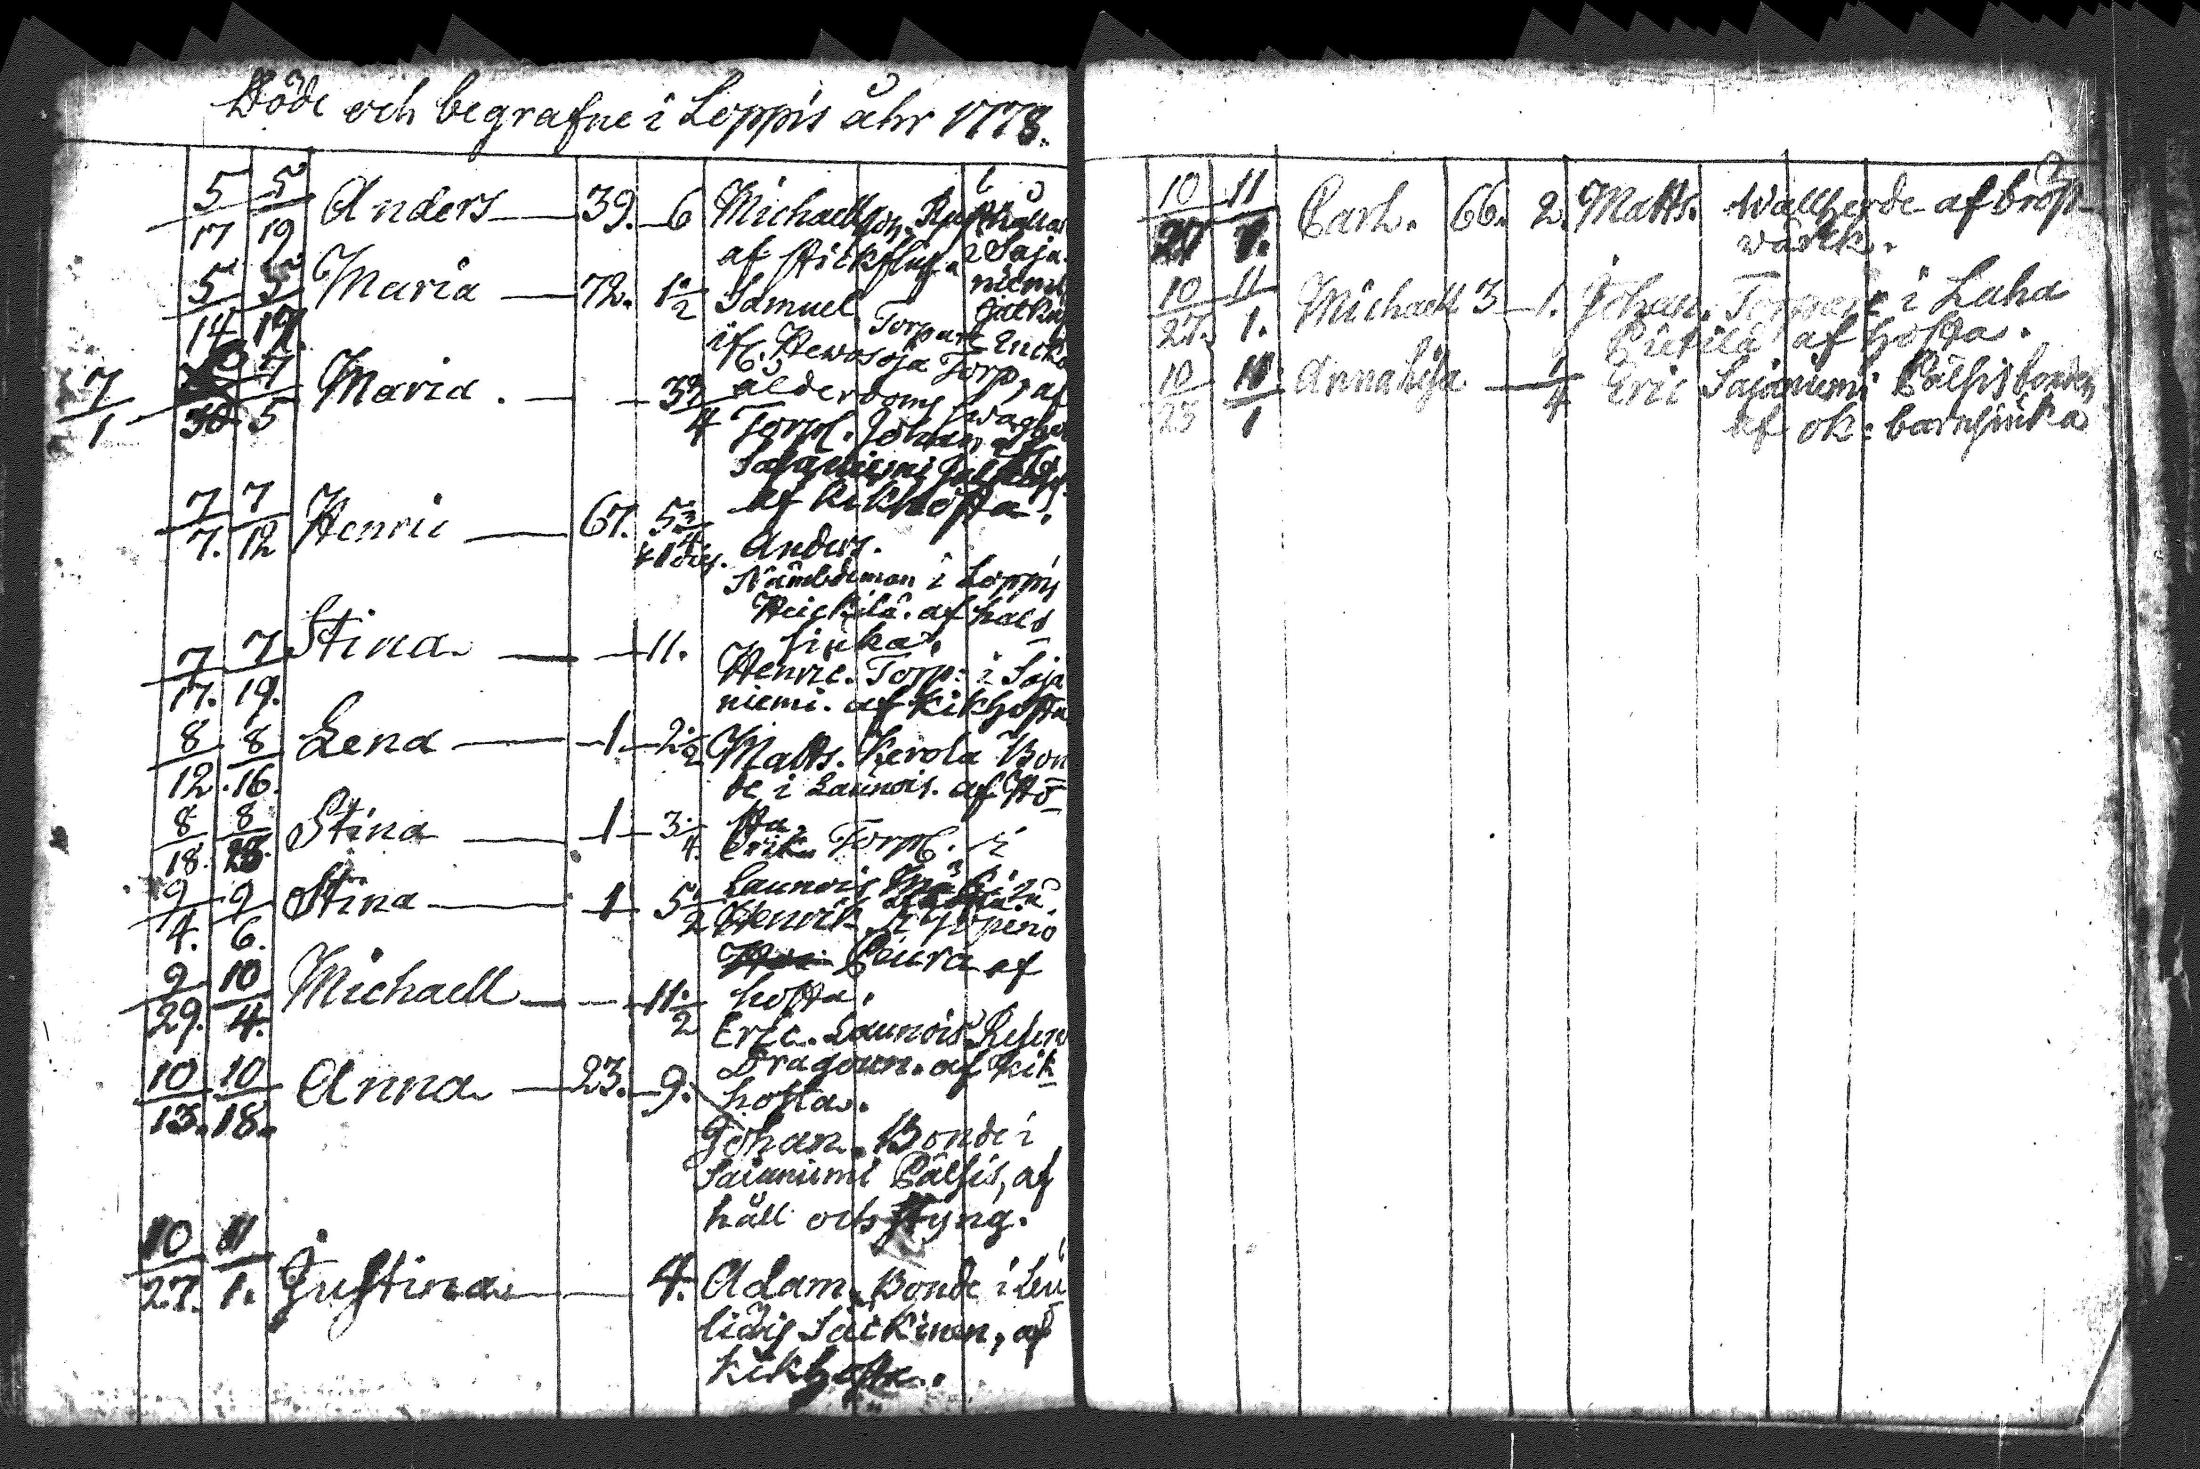 Döde och begrafne i Loppis åhr 1778.
5/17 5/19 Anders 39. 6 Michaellson Rusthålla
af Stickflug. i Saja
5/14 5/19. Maria 72. 1 1/2 Samuel. Torpare niemi
if. Hewosoja Torp, af
7/1 30 7/5 Maria. 3 3/4 alderdoms
Torp. Johan,
Sajaniemi
af kikhosta.
7/7. 7/12 Henric 67. 5 3/4 Anders.
Nämbdeman i Loppis
Heickilä. af hals
sjuka.
7/17. 7/19. Stina 11. Henric. Torp: i Saja
niemi. af kikhosta
8/12. 8/16. Lena 1 2 1/2 Matts. Kerola Bon
de i Launois. af Ho
sta.
8/18. 8/23. Stina 1 3/4. Erik Torp. i
Launois
9/4. 9/6. Stina 1 5 1/2 Henrik
Peura af
hosta.
9/29. 10/4. Michaell 11 1/2 Eric. Launois Reserv
Dragoun. af kik
hosta.
10/13. 10/18. Anna 23. 9. Johan. Bonde i
Saianiemi Pälsis, af
håll och styng.
10/27. 11/1. Justina 4. Adam. Bonde i Leu
lidis Säickinen, af
kikhosta.
10/27 11/1. Carl. 66. 2. Matts. Wallherde af bröst
wärk.
10/27. 11/1. Michaell 3 1. Johan. Torpare i Laha
Pietilä af hosta.
10/25 11/1 Anna Lisa 1/4 Eric Saianiemi Pälsis bonde,
af ok: barnsjuka